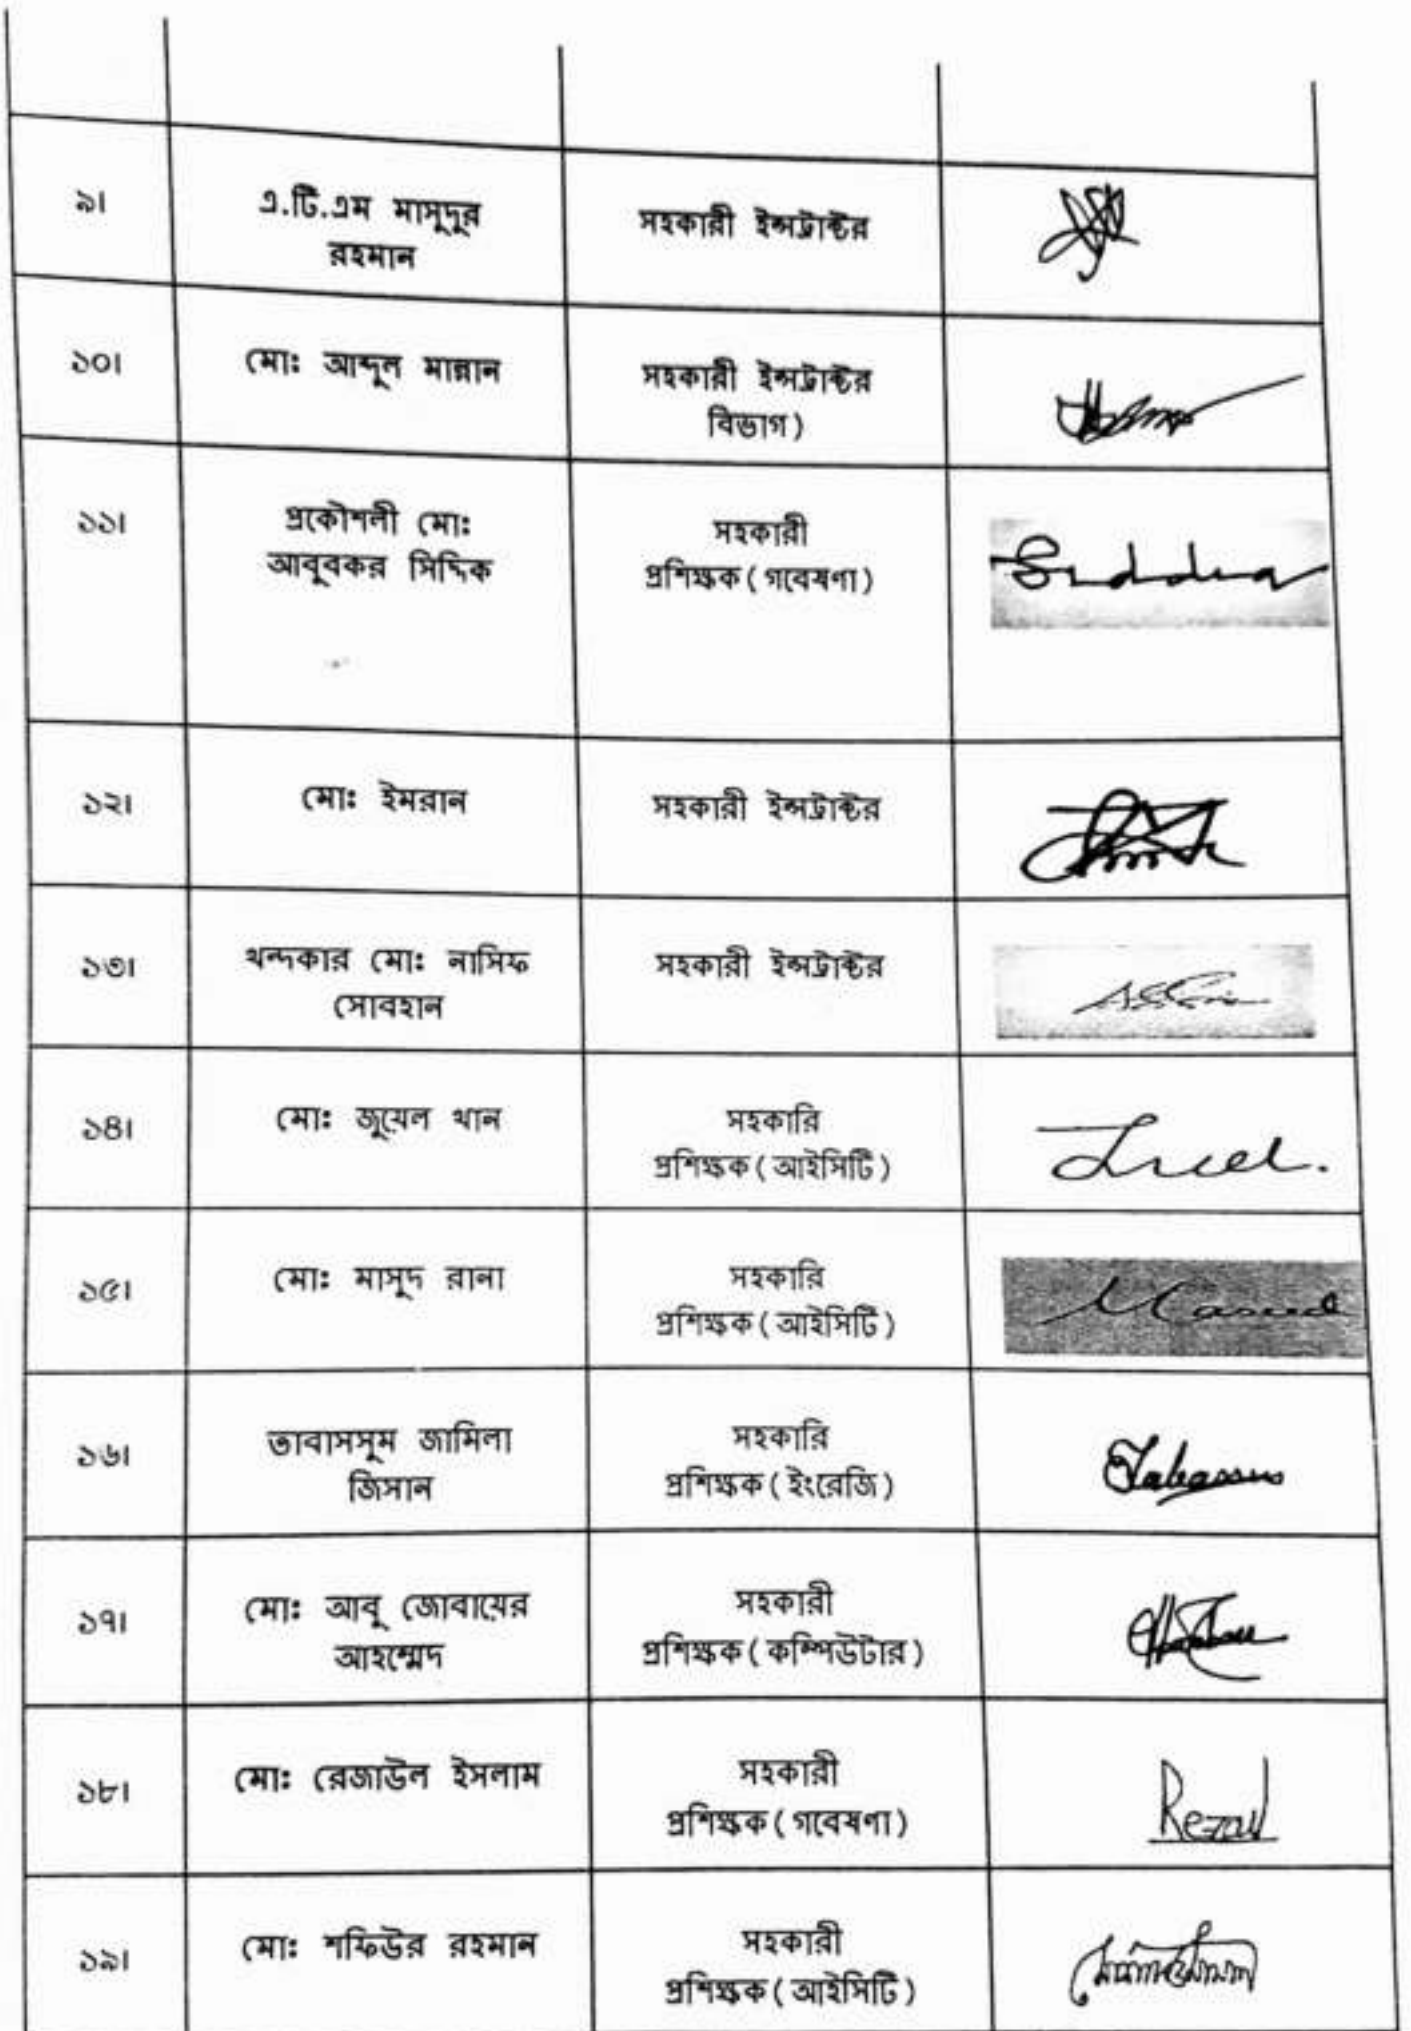 ৯। এ.টি.এম মাসুদুর সহকারী ইন্সট্রাক্টর
রহমান
১০। মো: আব্দুল মান্নান সহকারী ইন্সট্রাক্টর
বিভাগ)
১১। প্রকৌশলী মো: সহকারী
আবুবকর সিদ্দিক প্রশিক্ষক(গবেষণা)
১২। মো: ইমরান সহকারী ইন্সট্রাক্টর
১৩। খন্দকার মো: নাসিফ সহকারী ইন্সট্রাক্টর
সোবহান
১৪। মো: জুয়েল খান সহকারি
প্রশিক্ষক(আইসিটি)
১৫। মো: মাসুদ রানা সহকারি
প্রশিক্ষক(আইসিটি)
১৬। তাবাসসুম জামিলা সহকারি
জিসান প্রশিক্ষক(ইংরেজি)
১৭। মো: আবু জোবায়ের সহকারী
আহম্মেদ প্রশিক্ষক(কম্পিউটার)
১৮। মো: রেজাউল ইসলাম সহকারী
প্রশিক্ষক(গবেষণা) Rezaul
১৯। মো: শফিউর রহমান সহকারী
প্রশিক্ষক(আইসিটি)